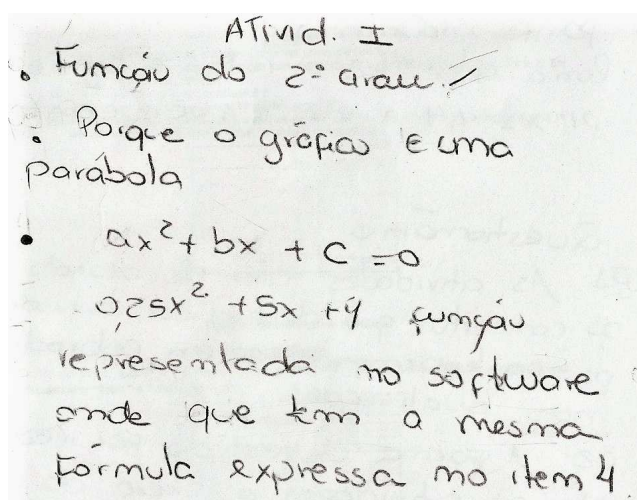 Ativid. I
• Função do 2º Grau.//
• Porque o gráfico é uma
parábola
• ax² + bx + c = 0
0,25x² + 5x + 4 função
representada no software
onde que tem a mesma
fórmula expressa no item 4